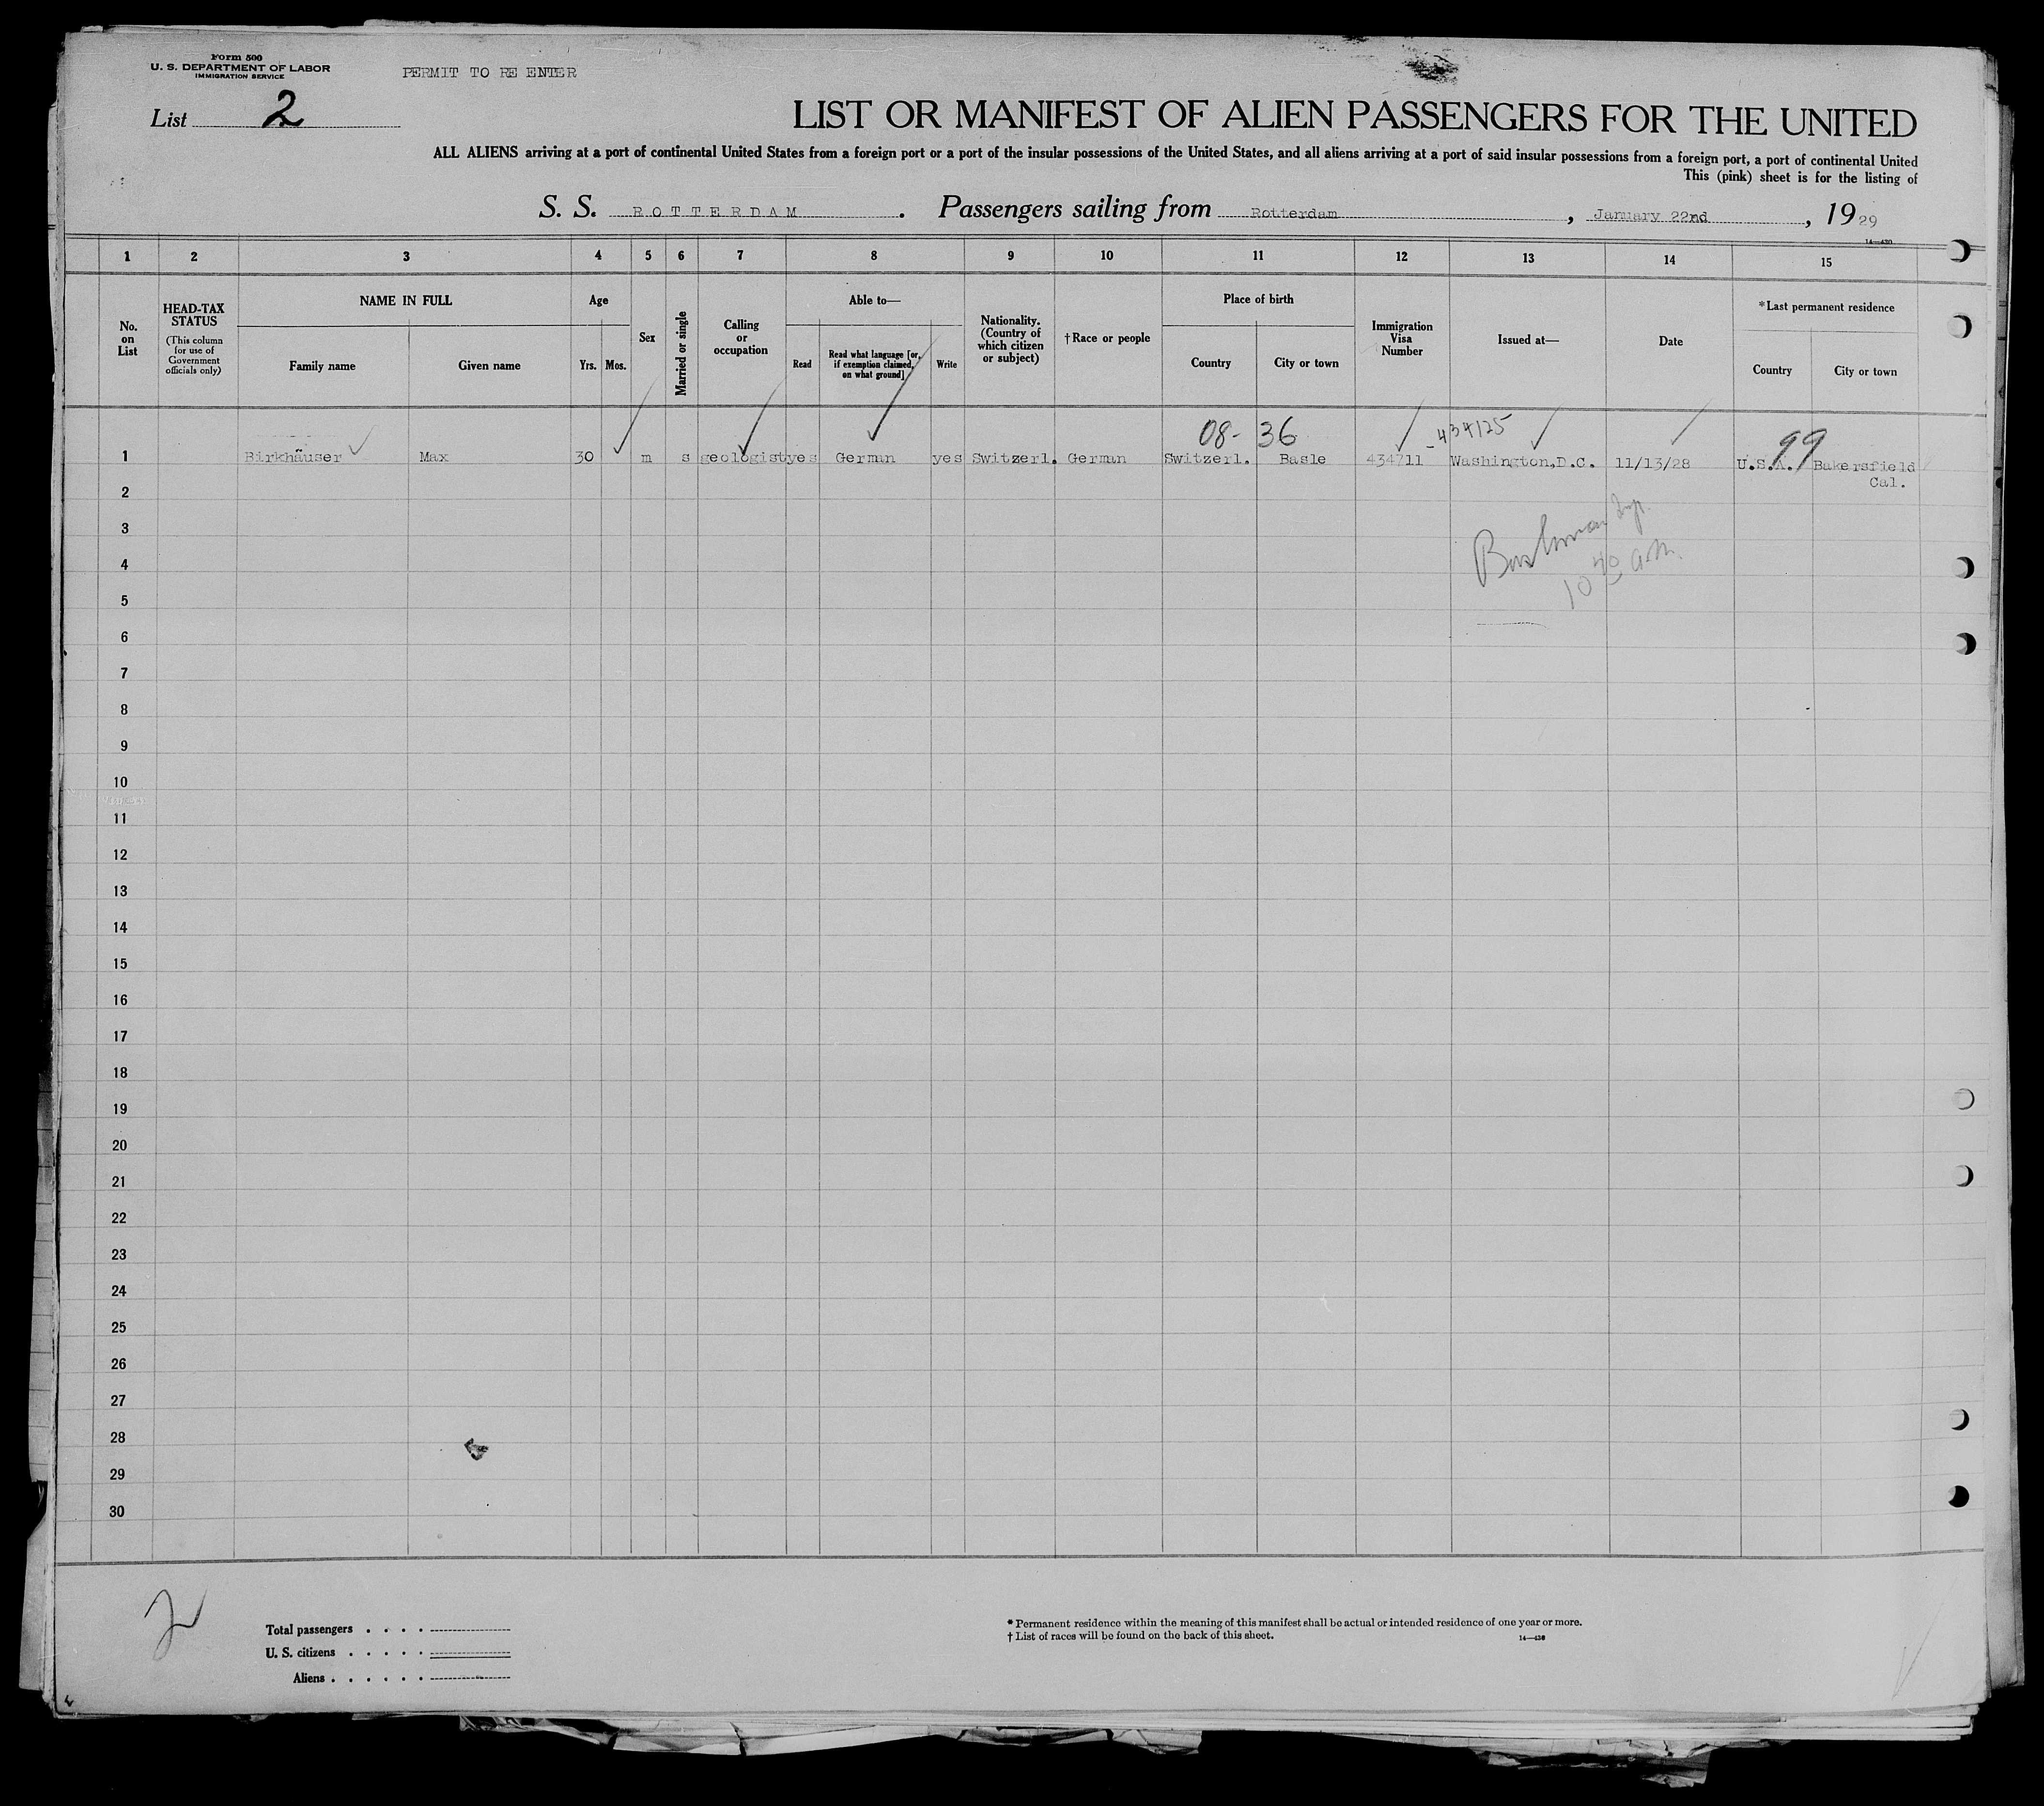 Form 500
U. S. DEPARTMENT OF LABOR
IMMIGRATION SERVICE
PERMIT TO RE ENTER
List 2
LIST OR MANIFEST OF ALIEN PASSENGERS FOR THE UNITED
ALL ALIENS arriving at a port of continental United States from a foreign port or a port of the insular possessions of the United States, and all aliens arriving at a port of said insular possessions from a foreign port, a port of continental United
This (pink) sheet is for the listing of
S. S. ROTTERDAM. Passengers sailing from Rotterdam, January 22nd, 1929
14—430
1 2 3 4 5 6 7 8 9 10 11 12 13 14 15
No. on List
HEAD-TAX STATUS
(This column for use of Government officials only)
NAME IN FULL
Family name Given name
Age
Yrs. Mos.
Sex
Married or single
Calling or occupation
Able to—
Read
Read what language [or, if exemption claimed, on what ground]
Write
Nationality. (Country of which citizen or subject)
†Race or people
Place of birth
Country City or town
Immigration Visa Number
Issued at—
Date
*Last permanent residence
Country City or town
08- 36 -434125 99
1 Birkhäuser Max 30 m s geologist yes German yes Switzerl. German Switzerl. Basle 434711 Washington,D.C. 11/13/28 U.S.A. Bakersfield
Cal.
2
3
4
10 40 a.m.
5
6
7
8
9
10
11
12
13
14
15
16
17
18
19
20
21
22
23
24
25
26
27
28
29
30
2
Total passengers
U. S. citizens
Aliens
* Permanent residence within the meaning of this manifest shall be actual or intended residence of one year or more.
† List of races will be found on the back of this sheet.
14—430